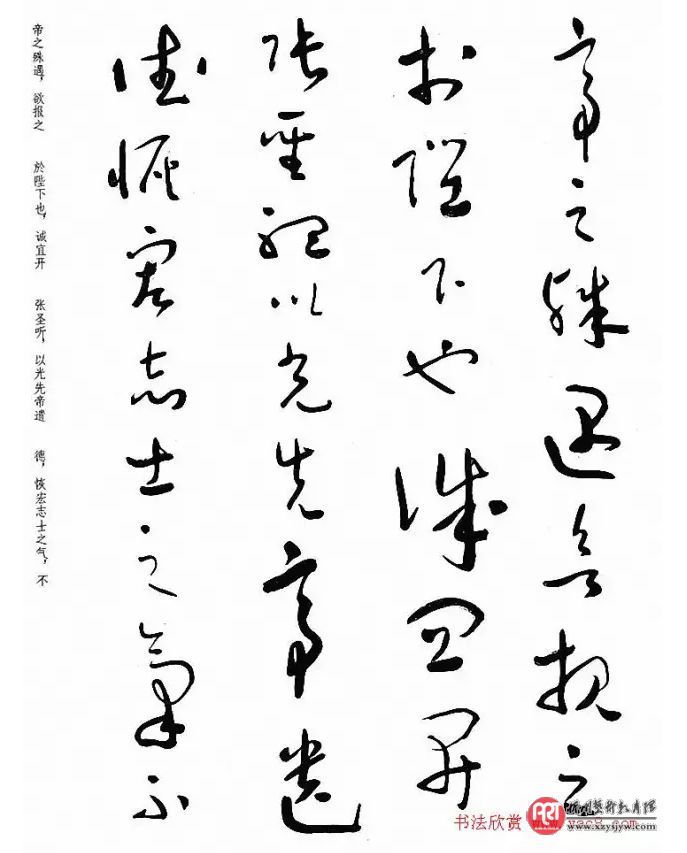 帝之殊遇欲报之
於陛下也诚宜开
张圣听以光先帝遗
德恢宏志士之气不
帝之殊遇，欲报之 於陛下也，诚宜开 张圣听，以光先帝遗 德，恢宏志士之气，不
书法欣赏 www.yac8.com
www.xzysjyw.com